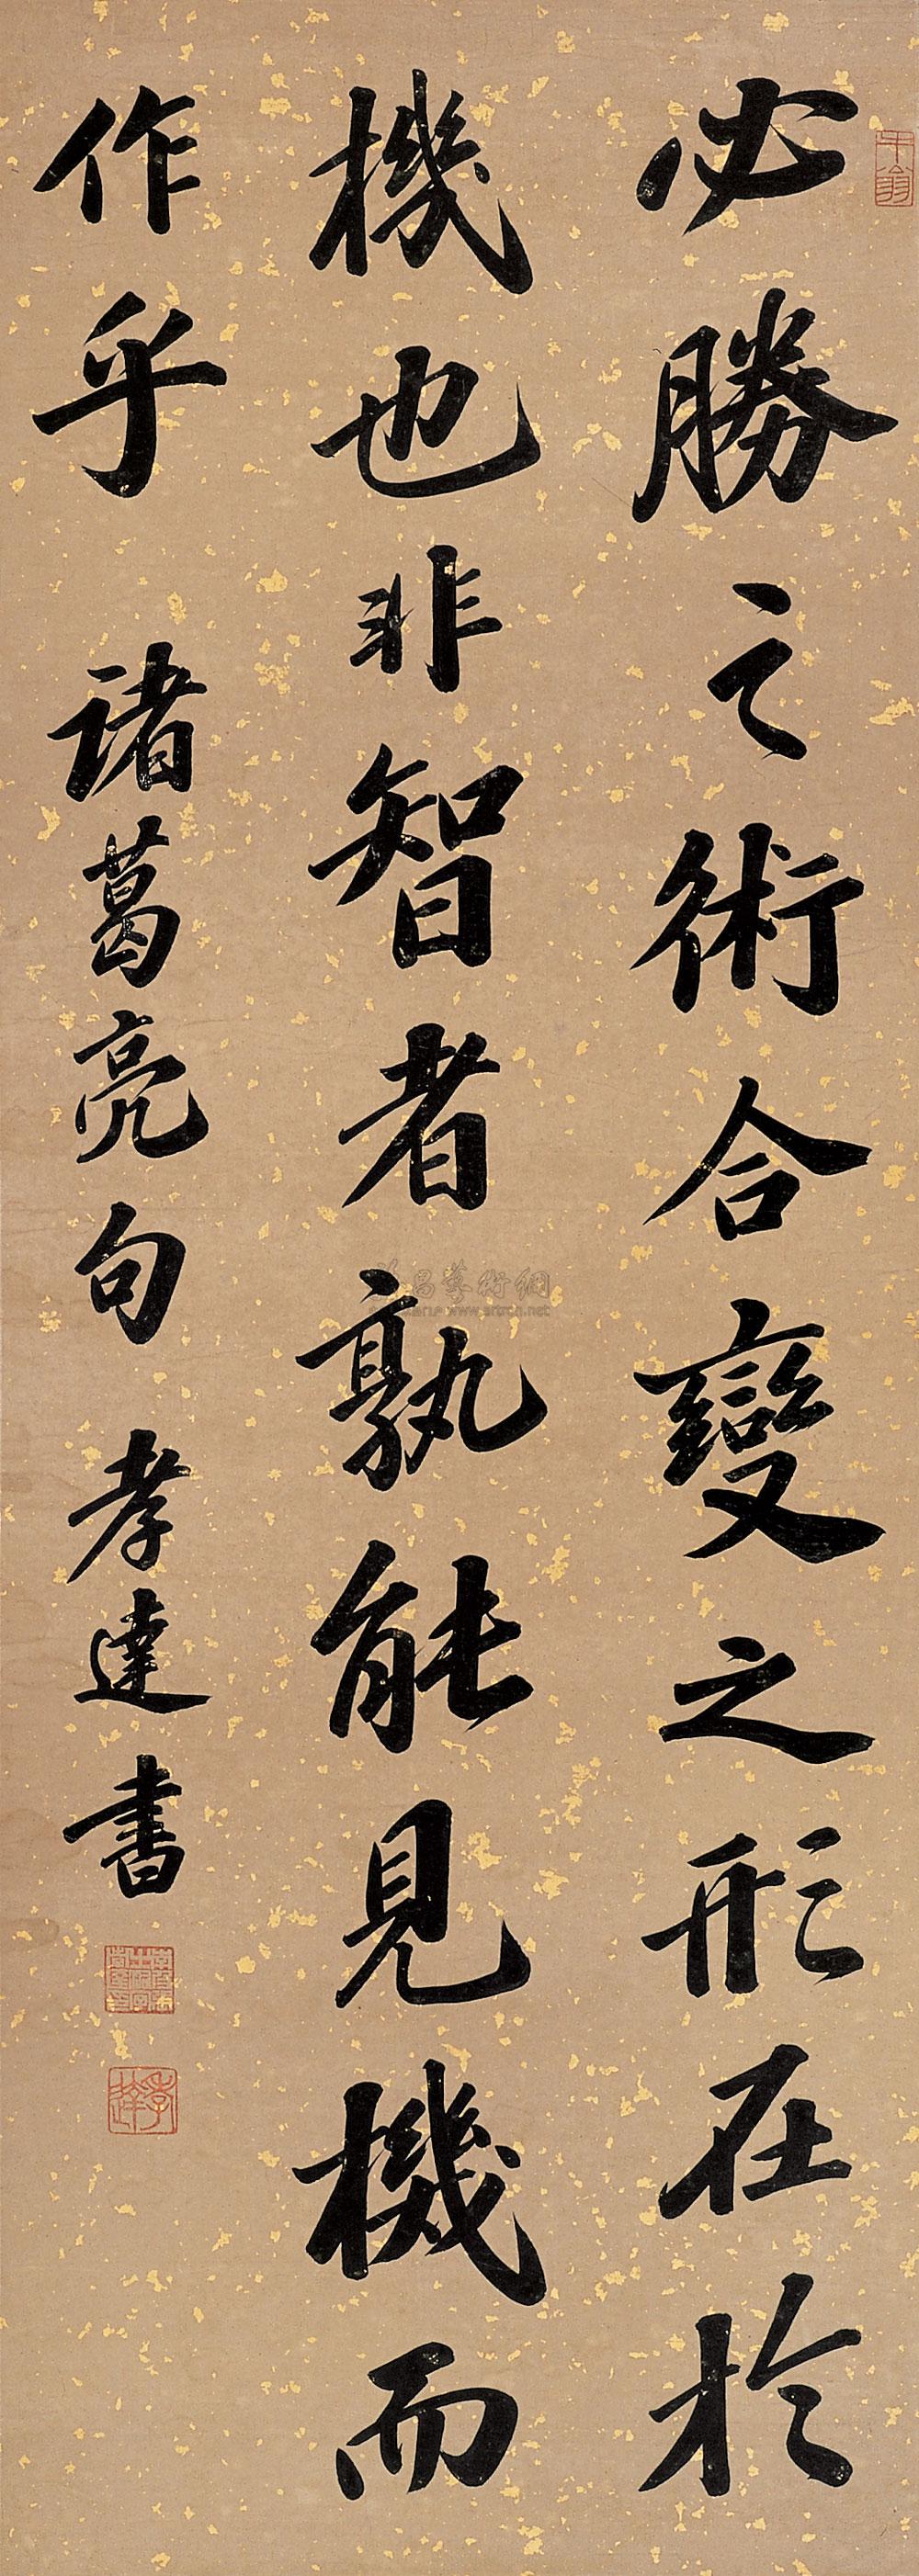 必勝之術合變之形在於
機也非智者孰能見機而
作乎 諸葛亮句 孝達書
孝達
www.artron.net